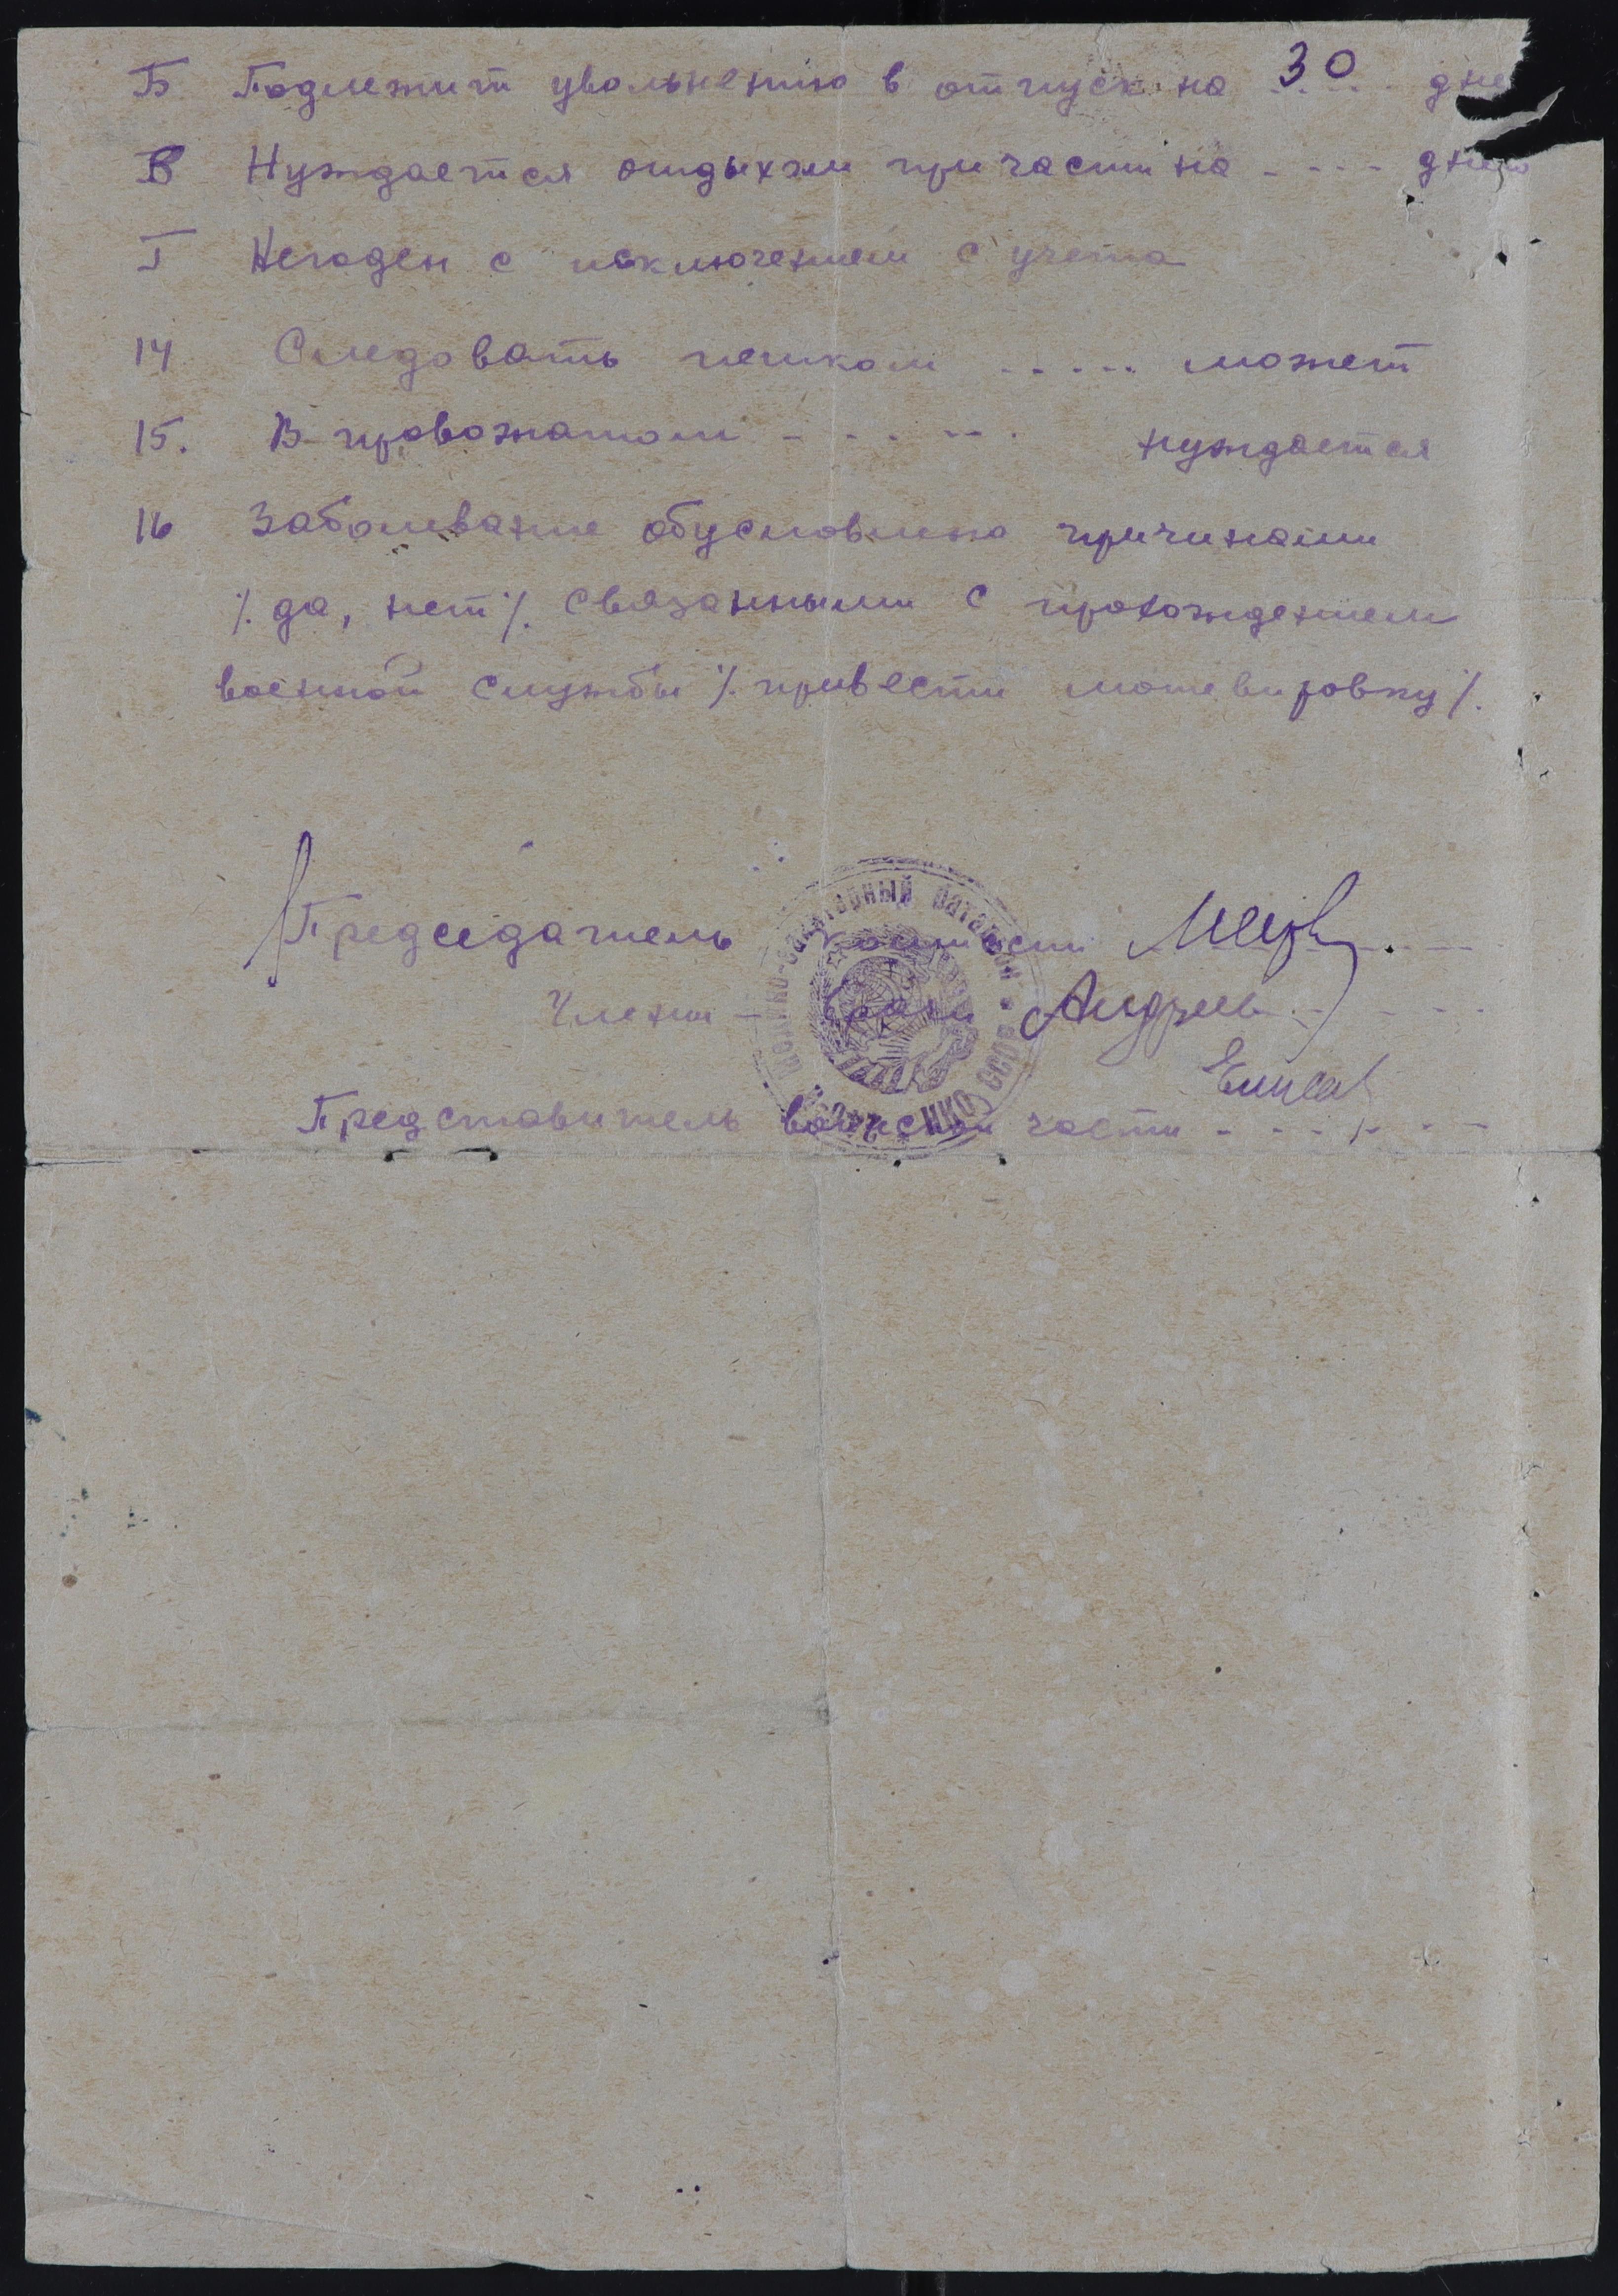 Б Подлежит увольнению в отпуск на 30 . . . дне
В Нуждается отдыхом при части на - - - - дней
Г Негоден с исключением с учета
14 Следовать пешком . . . . . может
15. В провожатом - - . . - - . нуждается
16 Заболевание обусловлено причинами
/. да, нет /. связанными с прохождением
военной службы /. привести мотевировку /.
Председатель комиссии
Члены - врачи
Представитель воинской части - - - - - - -
санитарный батальон
НКО СССР